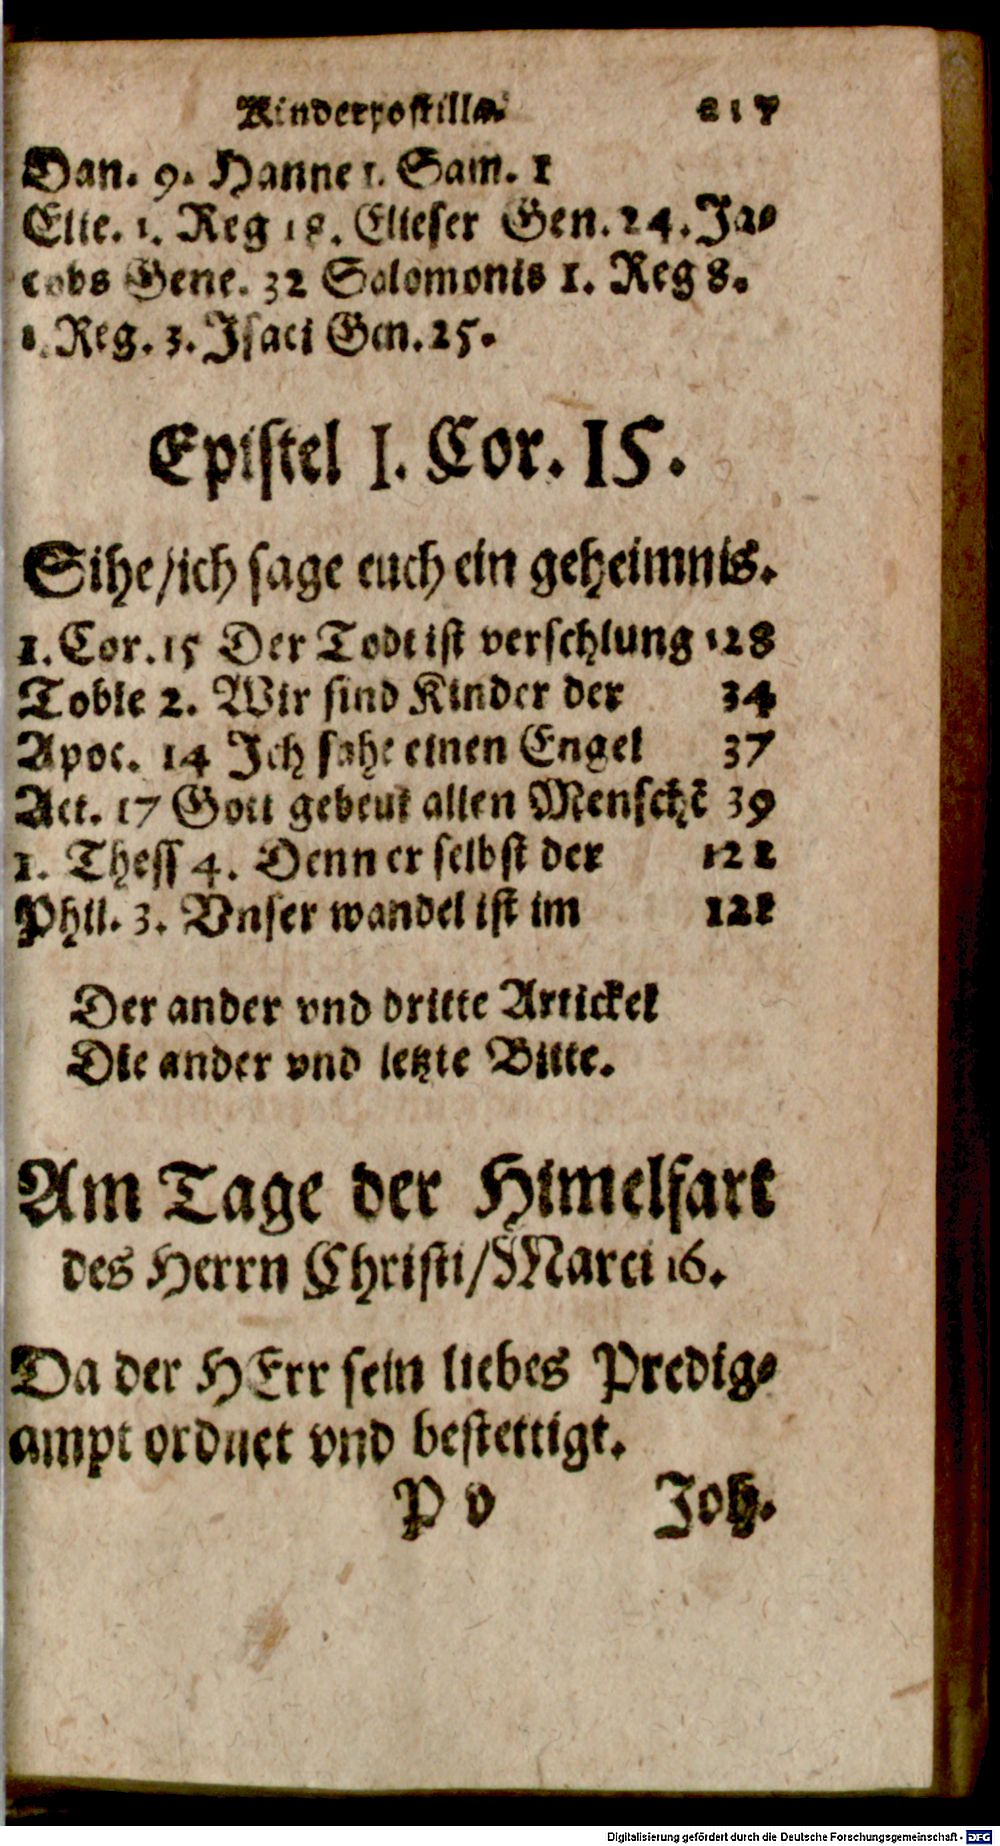 Kinderpostilla. 217
Dan. 9. Hanne 1. Sam. 1
Elie. 1. Reg 18. Elieser Gen. 24. Ja⸗
cobs Gene. 32 Salomonis 1. Reg 8.
1. Reg. 3. Isaci Gen. 25.
Epistel 1. Cor. 15.
Sihe/ich sage euch ein geheimnis.
1. Cor. 15 Der Todt ist verschlung 128
Tobie 2. Wir sind Kinder der 34
Apoc. 14 Ich sahe einen Engel 37
Act. 17 Gott gebeut allen Menschē 39
1. Thess 4. Denn er selbst der
Phil. 3. Vnser wandel ist im
Der ander vnd dritte Artickel
Die ander vnd letzte Bitte.
Am Tage der Himelfart
des Herrn Christi/Marci 16.
Da der HErr sein liebes Predig⸗
ampt ordnet vnd bestettigt.
P v Joh.
Digitalisierung gefördert durch die Deutsche Forschungsgemeinschaft - DFG